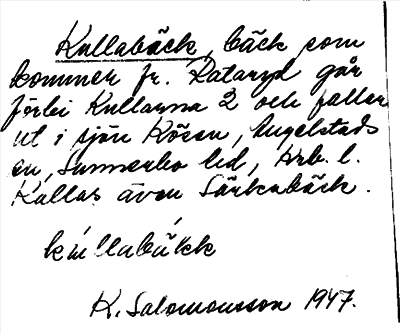 Kullabäck, bäck som
kommer fr. Rataryd går
förbi Kullarna 2 och faller
ut i sjön Kösen, Angelstads
sn, Sunnerbo hd, Krb. l.
Kallas även Särkenbäck.
kúllabä̀kk
K. Salomonsson 1947.